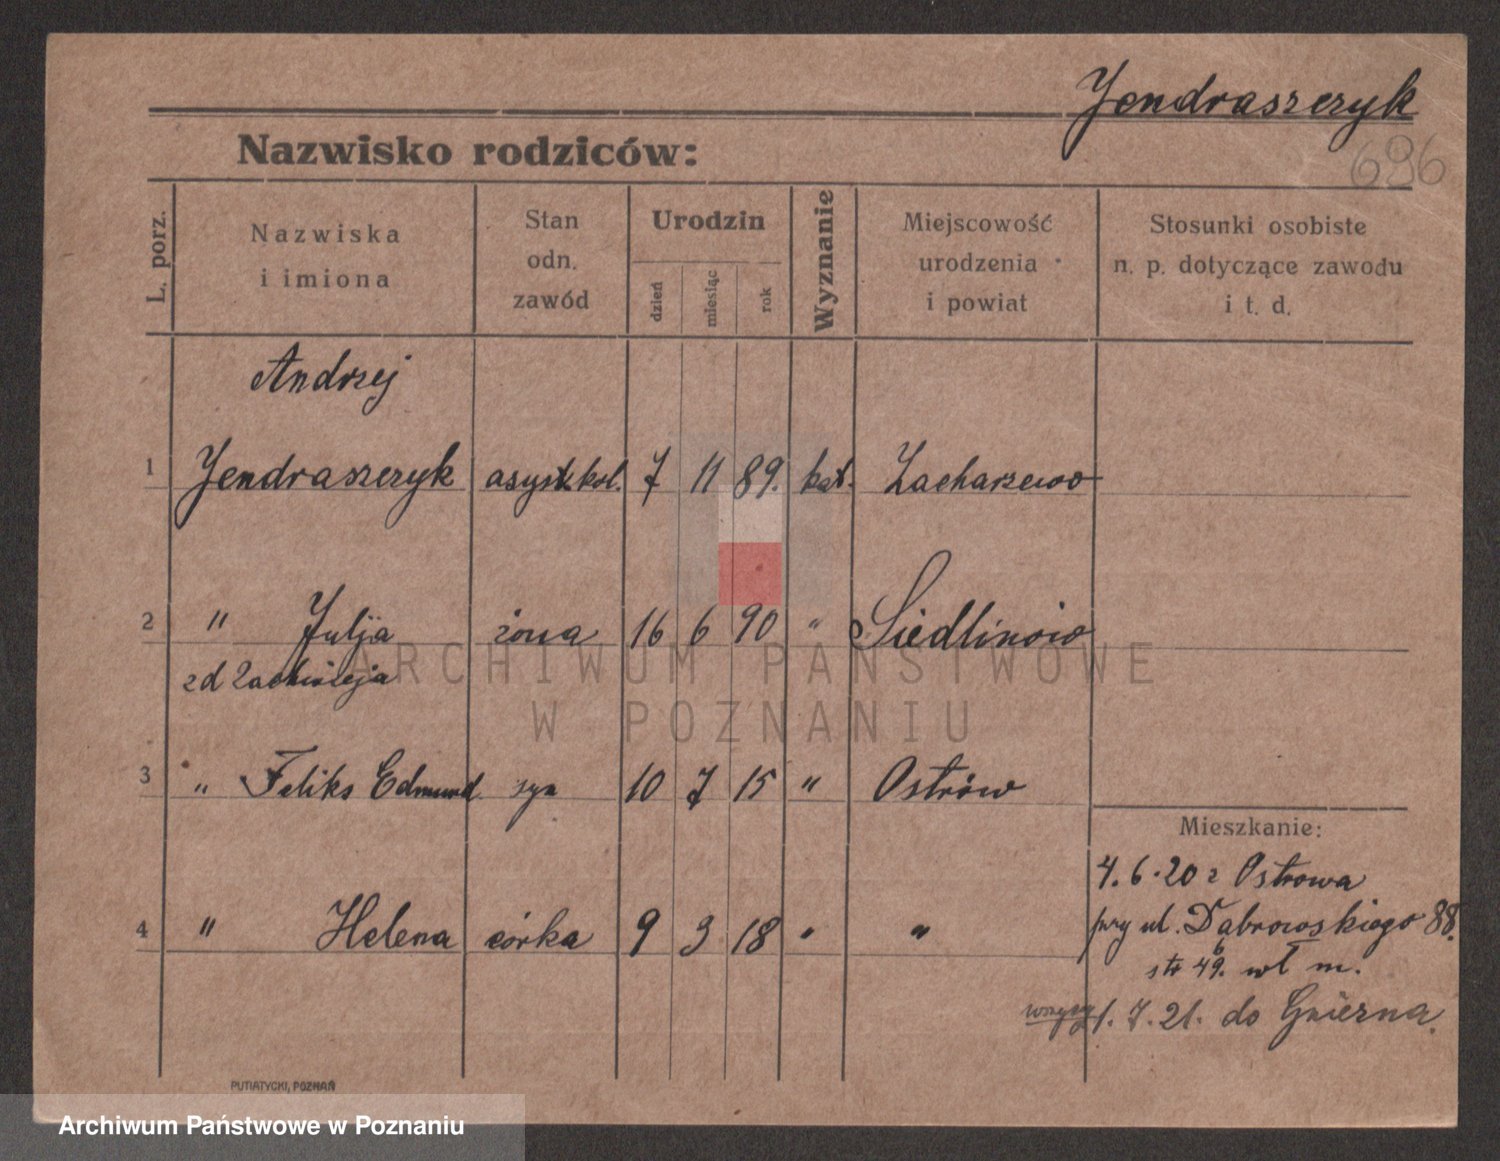 Jendraszczyk
696
Nazwisko rodziców:
L. porz.
Nazwiska
i imiona
Stan
odn.
zawód
Urodzin
dzień
miesiąc
rok
Wyznanie
Miejscowość
urodzenia
i powiat
Stosunki osobiste
n. p. dotyczące zawodu
i t. d.
Andrzej
1 Jendraszczyk asyst. kol. 7 11 89. kat. Zacharzewo
2 " Julja żona 16 6 90 " Siedlinowo
zd
3 " Feliks Edmund syn 10 7 15 " Ostrów
Mieszkanie:
4.6.20 z Ostrowa
4 " Helena córka 9 3 18 " "
przy ul. Dąbrowskiego 88.
6
str 49. wł m.
wszyscy 1.7.21. do Gniezna.
PUTIATYCKI, POZNAŃ
ARCHIWUM PAŃSTWOWE
W POZNANIU
Archiwum Państwowe w Poznaniu